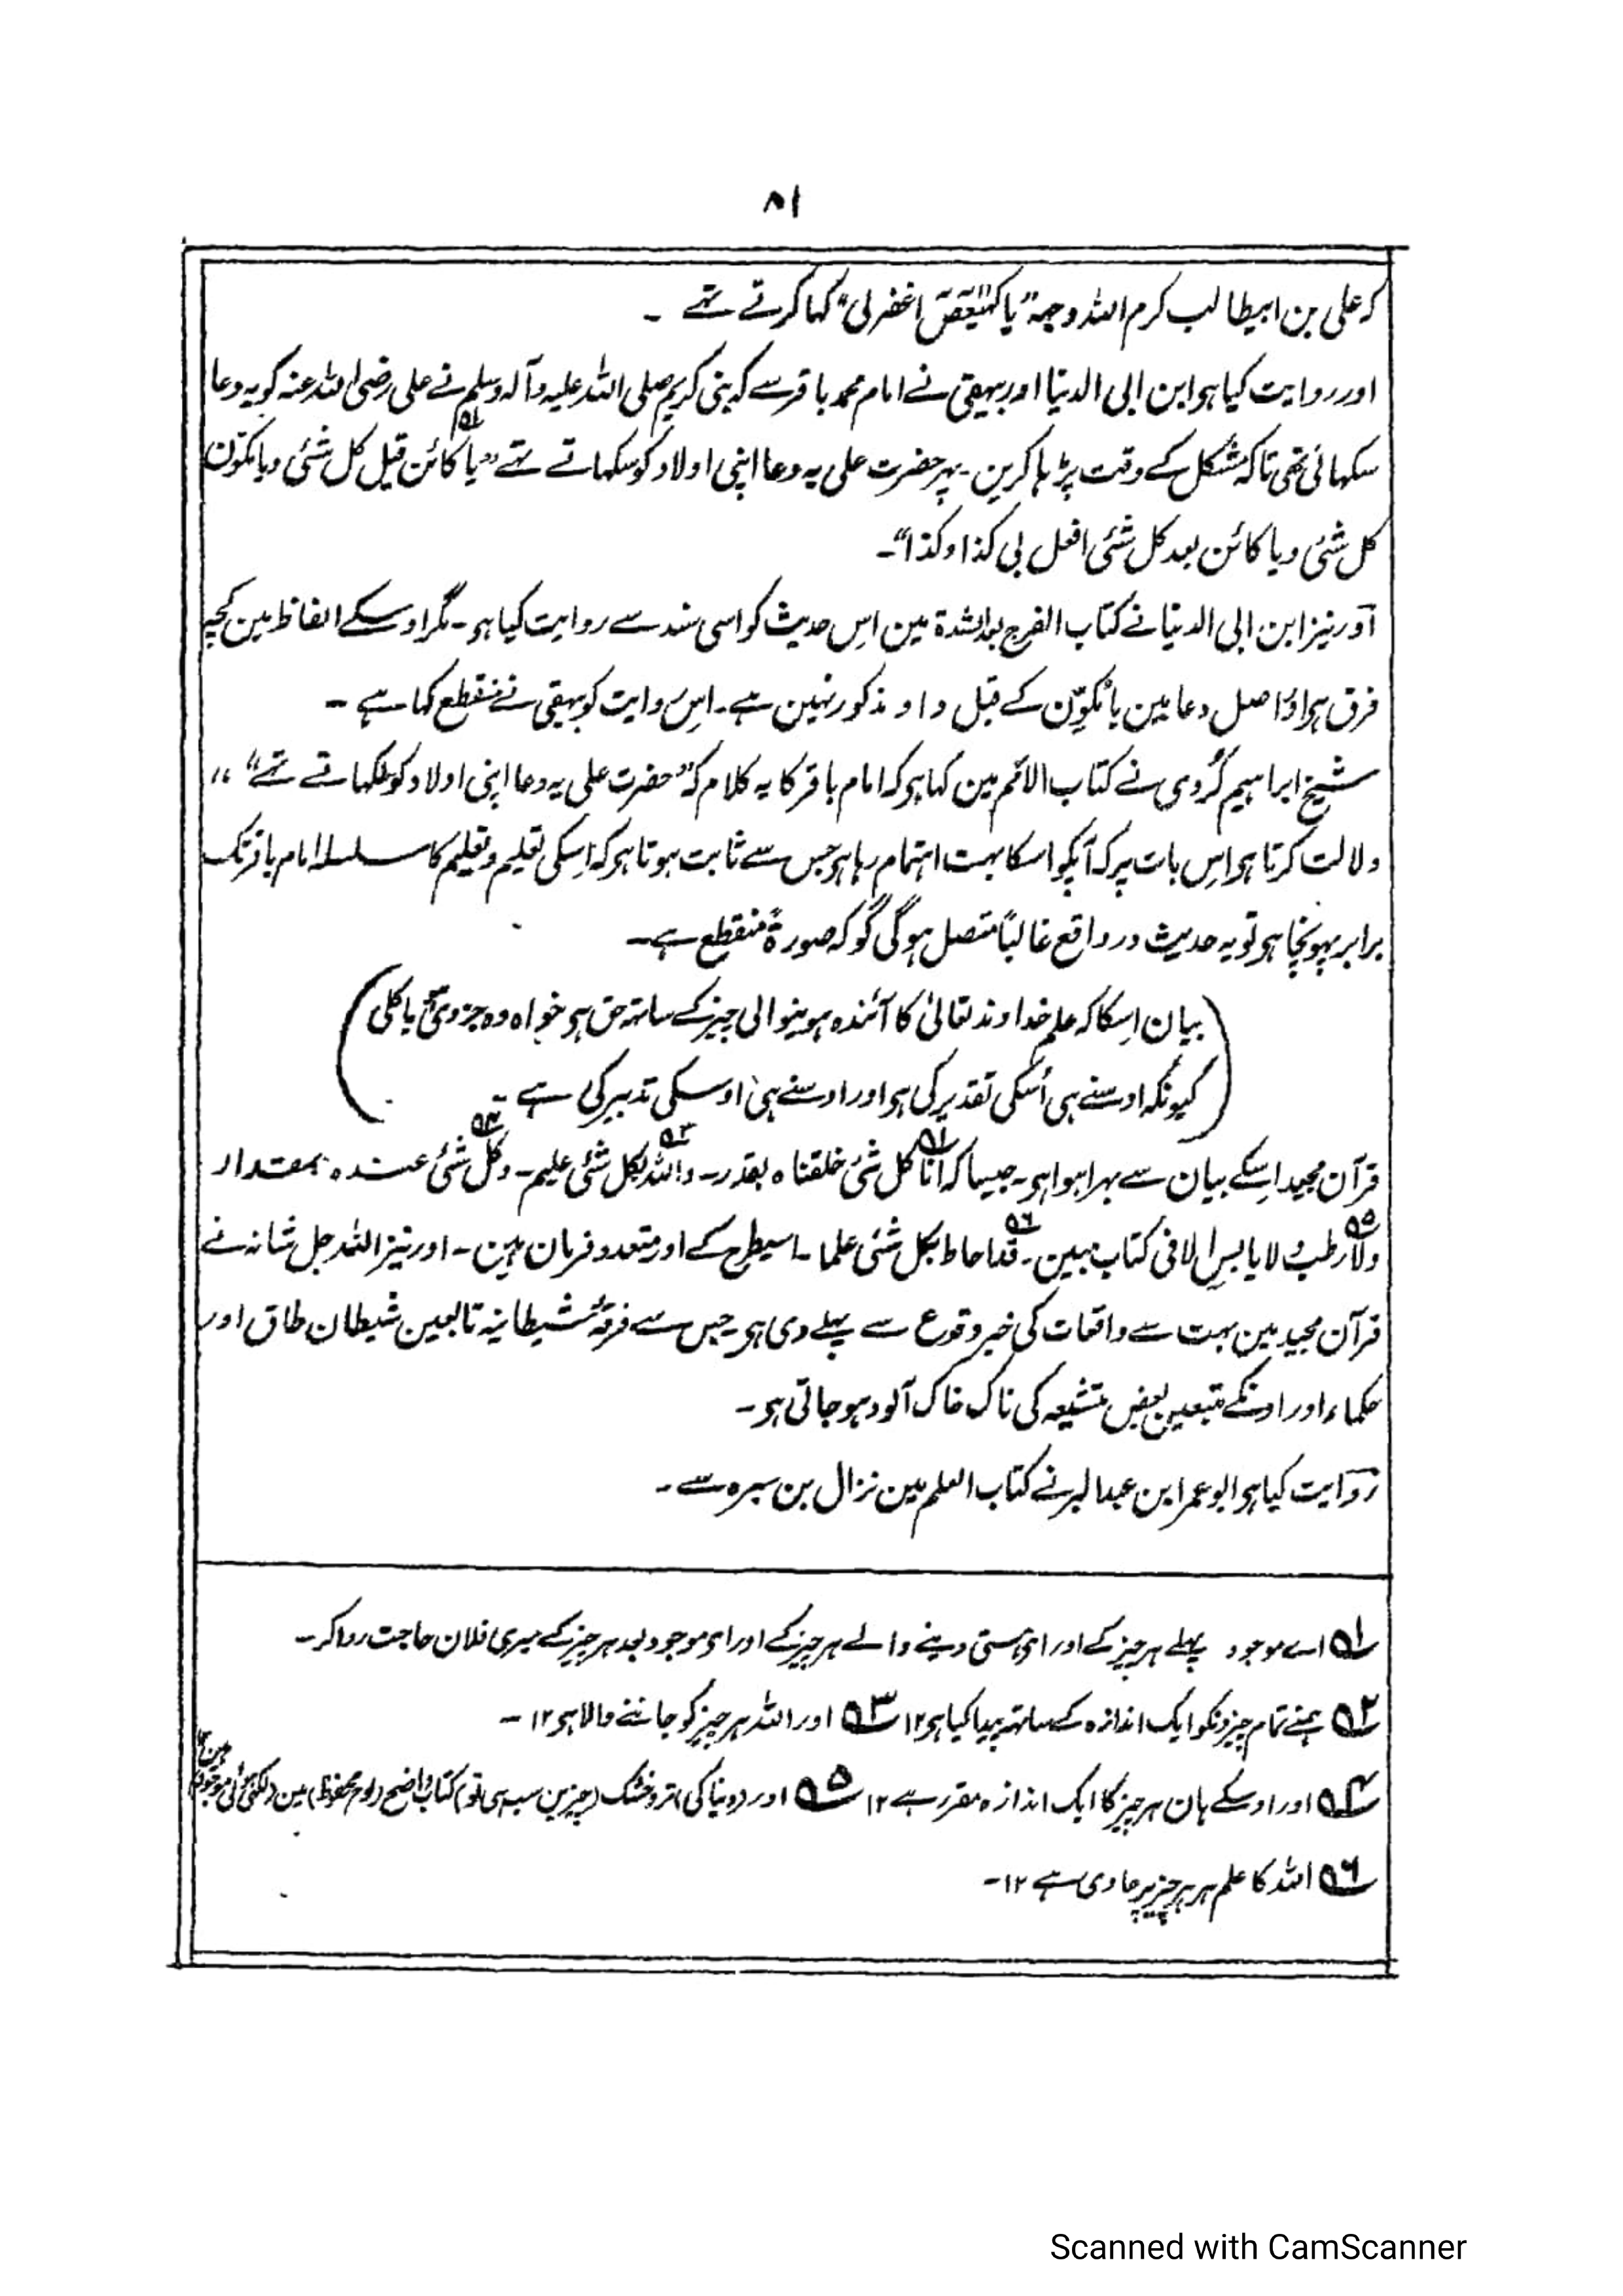 ۸۱
کہ علی بن ابیطالب کرم اللہ وجہہ "یا کہٰیٰعص اغفرلی" کہا کرتے تہے ۔
اور روایت کیا ہو ابن ابی الدنیا اور بیہقی نے امام محمد باقر سے کہ نبی کریم صلی اللہ علیہ وآلہ وسلم نے علی رضی اللہ عنہ کو یہ دعا
سکہائی تھی تاکہ مشکل کے وقت پڑہا کرین ۔ پہر حضرت علی یہ دعا اپنی اولاد کو سکہاتے تہے "یا ۱ کائن قبل کل شئی ویا مکوّن
کل شئی ویا کائن بعد کل شئی افعل لی کذا وکذا"۔
آور نیز ابن ابی الدنیا نے کتاب الفرج بعد الشدۃ مین اس حدیث کو اسی سند سے روایت کیا ہو ۔ مگر اوسکے الفاظ مین کچہ
فرق ہو اور اصل دعا مین یا مکوّن کے قبل واو مذکور نہین ہے ۔ اس روایت کو بیہقی نے منقطع کہا ہے ۔
شیخ ابراہیم کُردی نے کتاب الامم مین کہا ہو کہ امام باقر کا یہ کلام کہ "حضرت علی یہ دعا اپنی اولاد کو سکہاتے تہے" ،،
دلالت کرتا ہو اس بات پر کہ آپکو اسکا بہت اہتمام رہا ہو جس سے ثابت ہوتا ہو کہ اسکی تعلیم وتعلم کا سلسلہ امام باقر تک
برابر پہونچا ہو تو یہ حدیث در واقع غالباً متصل ہوگی گو کہ صورۃً منقطع ہے ۔
(بیان اسکا کہ علم خداوند تعالیٰ کا آئندہ ہونیوالی چیز کے ساتہ حق ہو خواہ وہ جزوی ہو یا کلی
کیونکہ اوسنے ہی اُسکی تقدیر کی ہو اور اوسنے ہی اوسکی تدبیر کی ہے ۔)
قرآن مجید اسکے بیان سے بہرا ہوا ہو ۔ جیسا کہ انا کل شئی خلقناہ بقدر ۔ ۳ واللہ بکل شئی علیم ۔ ۴ وکل شئی عندہ بمقدار
۵ ولا رطب ولا یابس الا فی کتاب مبین ۔ ۶ قد احاط بکل شئی علما ۔ اسیطرح کے اور متعدد فرمان ہین ۔ اور نیز اللہ جل شانہ نے
قرآن مجید مین بہت سے واقعات کی خبر وقوع سے پہلے دی ہو جس سے فرقۂ شیطانیہ تابعین شیطان طاق اور
حکماء اور اونکے متبعین بعض متشیعہ کی ناک خاک آلود ہو جاتی ہو ۔
روایت کیا ہو ابو عمر ابن عبد البر نے کتاب العلم مین نزال بن سبرہ سے ۔
۱ اے موجود پہلے ہر چیز کے اور ای ہستی دینے والے ہر چیز کے اور ای موجود بعد ہر چیز کے میری فلان حاجت روا کر ۔
۲ ہمنے تمام چیزونکو ایک اندازہ کے ساتہ پیدا کیا ہو ۱۲ ۳ اور اللہ ہر چیز کو جاننے والا ہو ۱۲ ۔
۴ اور اوسکے ہان ہر چیز کا ایک اندازہ مقرر ہے ۱۲ ۵ اور (دنیا کی) تر و خشک (چیزین سب ہی تو) کتاب واضح (لوح محفوظ) مین (لکھی ہوئی موجود) ہین ۱۲
۶ اللہ کا علم ہر ہر چیز پر حاوی ہے ۱۲ ۔
Scanned with CamScanner